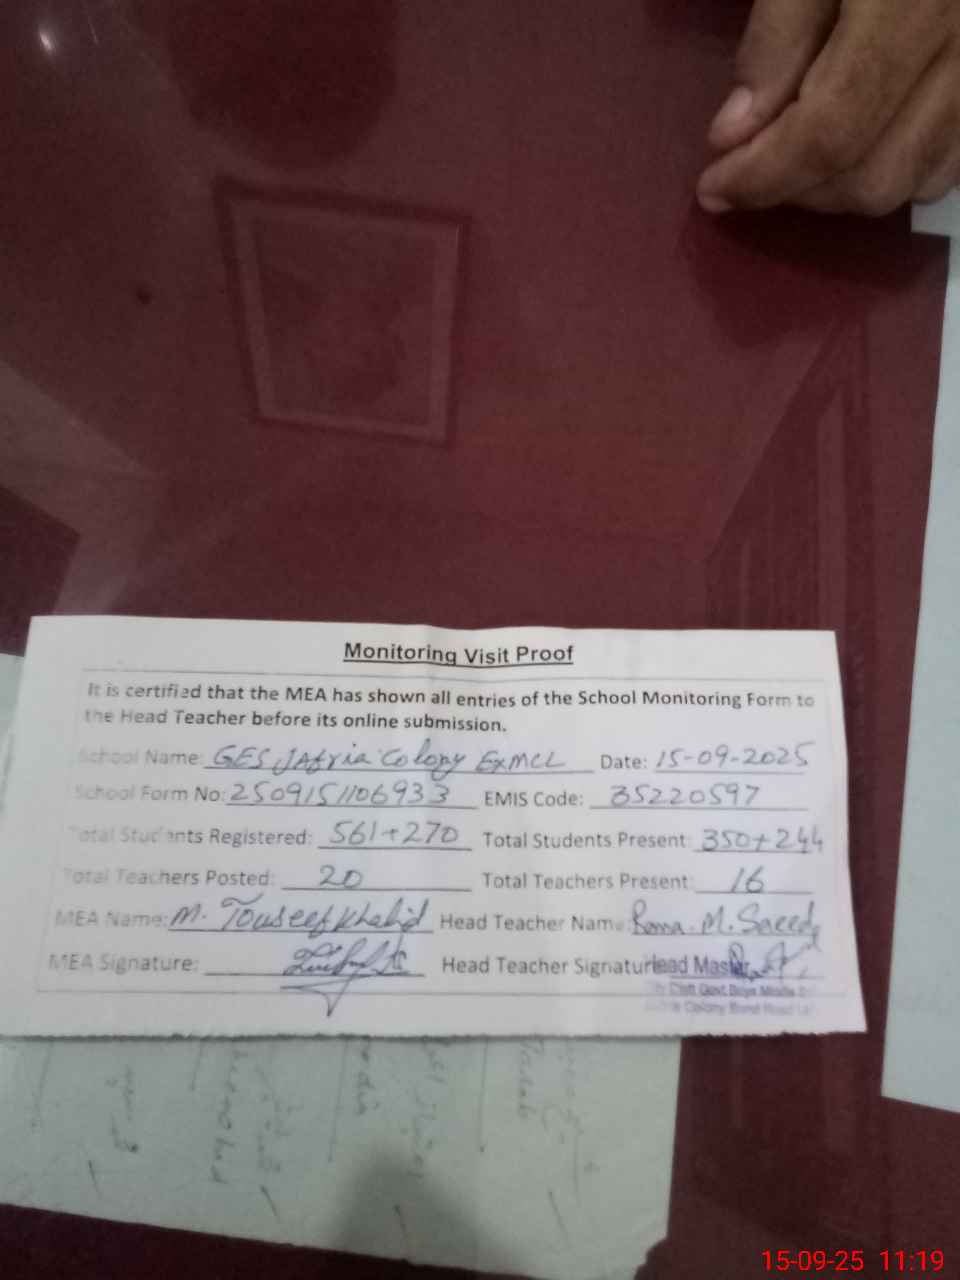 Monitoring Visit Proof
It is certified that the MEA has shown all entries of the School Monitoring Form to
the Head Teacher before its online submission.
School Name: GES Jafria Colony ExMCL Date: 15-09-2025
School Form No: 2509151106933 EMIS Code: 35220597
Total Students Registered: 561+270 Total Students Present: 350+244
Total Teachers Posted: 20 Total Teachers Present: 16
MEA Name: M. Touseef Khalid Head Teacher Name: M. Saeed
MEA Signature: Head Teacher Signature Head Master
Govt Boys
Colony Bund Road
15-09-25 11:19